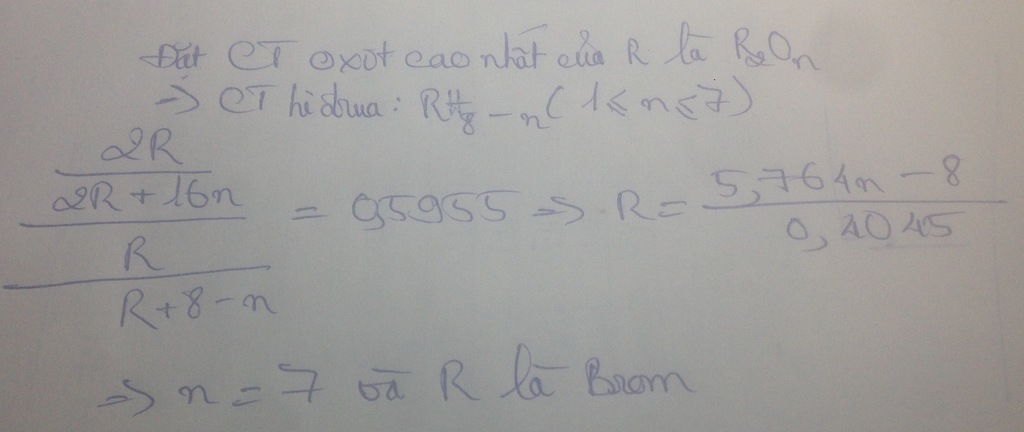 Đặt CT oxit cao nhất của R là R₂Oₙ
=> CT hidrua: RH₈₋ₙ ( 1 ≤ n ≤ 7 )
2R / 2R + 16n / R / R + 8 - n = 0,5955 => R = 5,764n - 8 / 0,4045
=> n = 7 và R là Brom